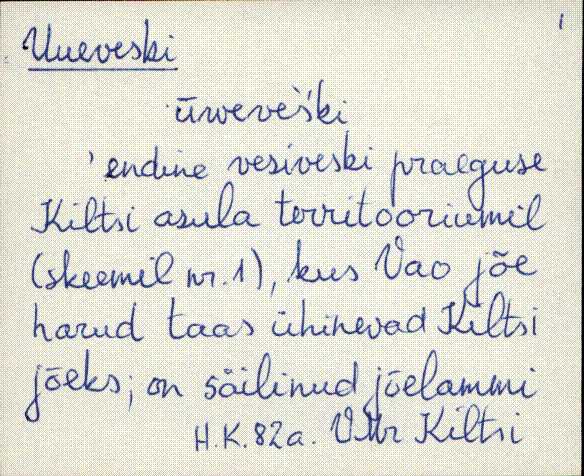 1
Uueveski
ūweveški
'endine vesiveski praeguse
Kiltsi asula territooriumil
(skeemil nr. 1), kus Vao jõe
harud taas ühinevad Kiltsi
jõeks; on säilinud jõelammi
H.K. 82a. VMr Kiltsi